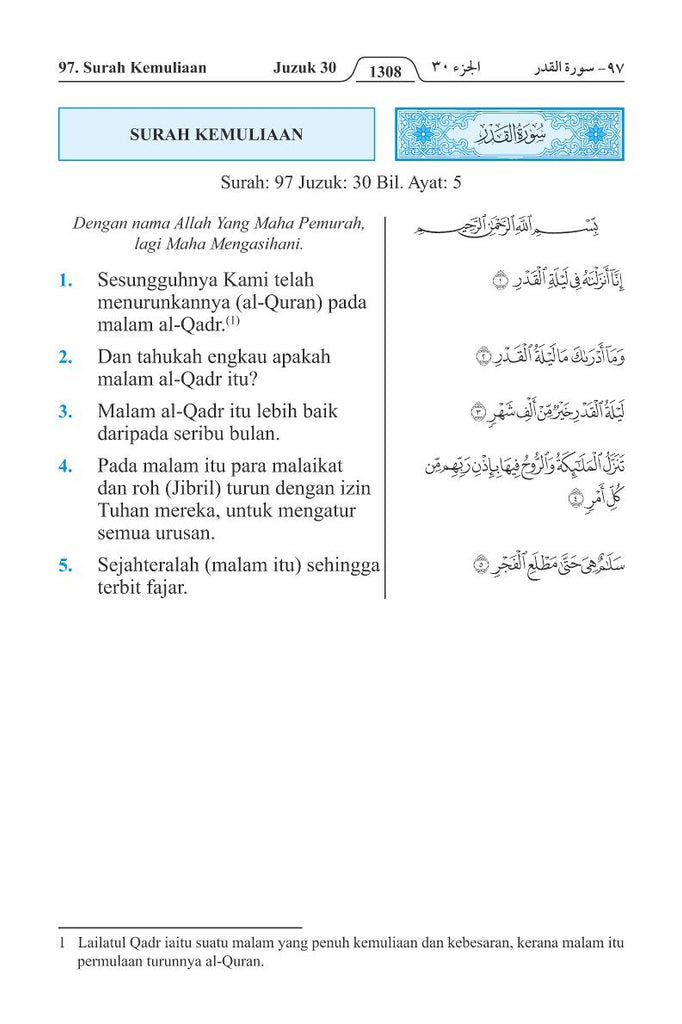 97. Surah Kemuliaan Juzuk 30 1308 الجزء ٣٠ ٩٧- سورة القدر
SURAH KEMULIAAN
سُورَةُ الْقَدْرِ
Surah: 97 Juzuk: 30 Bil. Ayat: 5
Dengan nama Allah Yang Maha Pemurah,
lagi Maha Mengasihani.
بِسْمِ اللَّهِ الرَّحْمَٰنِ الرَّحِيمِ
1. Sesungguhnya Kami telah
menurunkannya (al-Quran) pada
malam al-Qadr.(1)
إِنَّا أَنزَلْنَاهُ فِي لَيْلَةِ الْقَدْرِ ١
2. Dan tahukah engkau apakah
malam al-Qadr itu?
وَمَا أَدْرَاكَ مَا لَيْلَةُ الْقَدْرِ ٢
3. Malam al-Qadr itu lebih baik
daripada seribu bulan.
لَيْلَةُ الْقَدْرِ خَيْرٌ مِّنْ أَلْفِ شَهْرٍ ٣
4. Pada malam itu para malaikat
dan roh (Jibril) turun dengan izin
Tuhan mereka, untuk mengatur
semua urusan.
تَنَزَّلُ الْمَلَائِكَةُ وَالرُّوحُ فِيهَا بِإِذْنِ رَبِّهِم مِّن
كُلِّ أَمْرٍ ٤
5. Sejahteralah (malam itu) sehingga
terbit fajar.
سَلَامٌ هِيَ حَتَّىٰ مَطْلَعِ الْفَجْرِ ٥
1 Lailatul Qadr iaitu suatu malam yang penuh kemuliaan dan kebesaran, kerana malam itu
permulaan turunnya al-Quran.